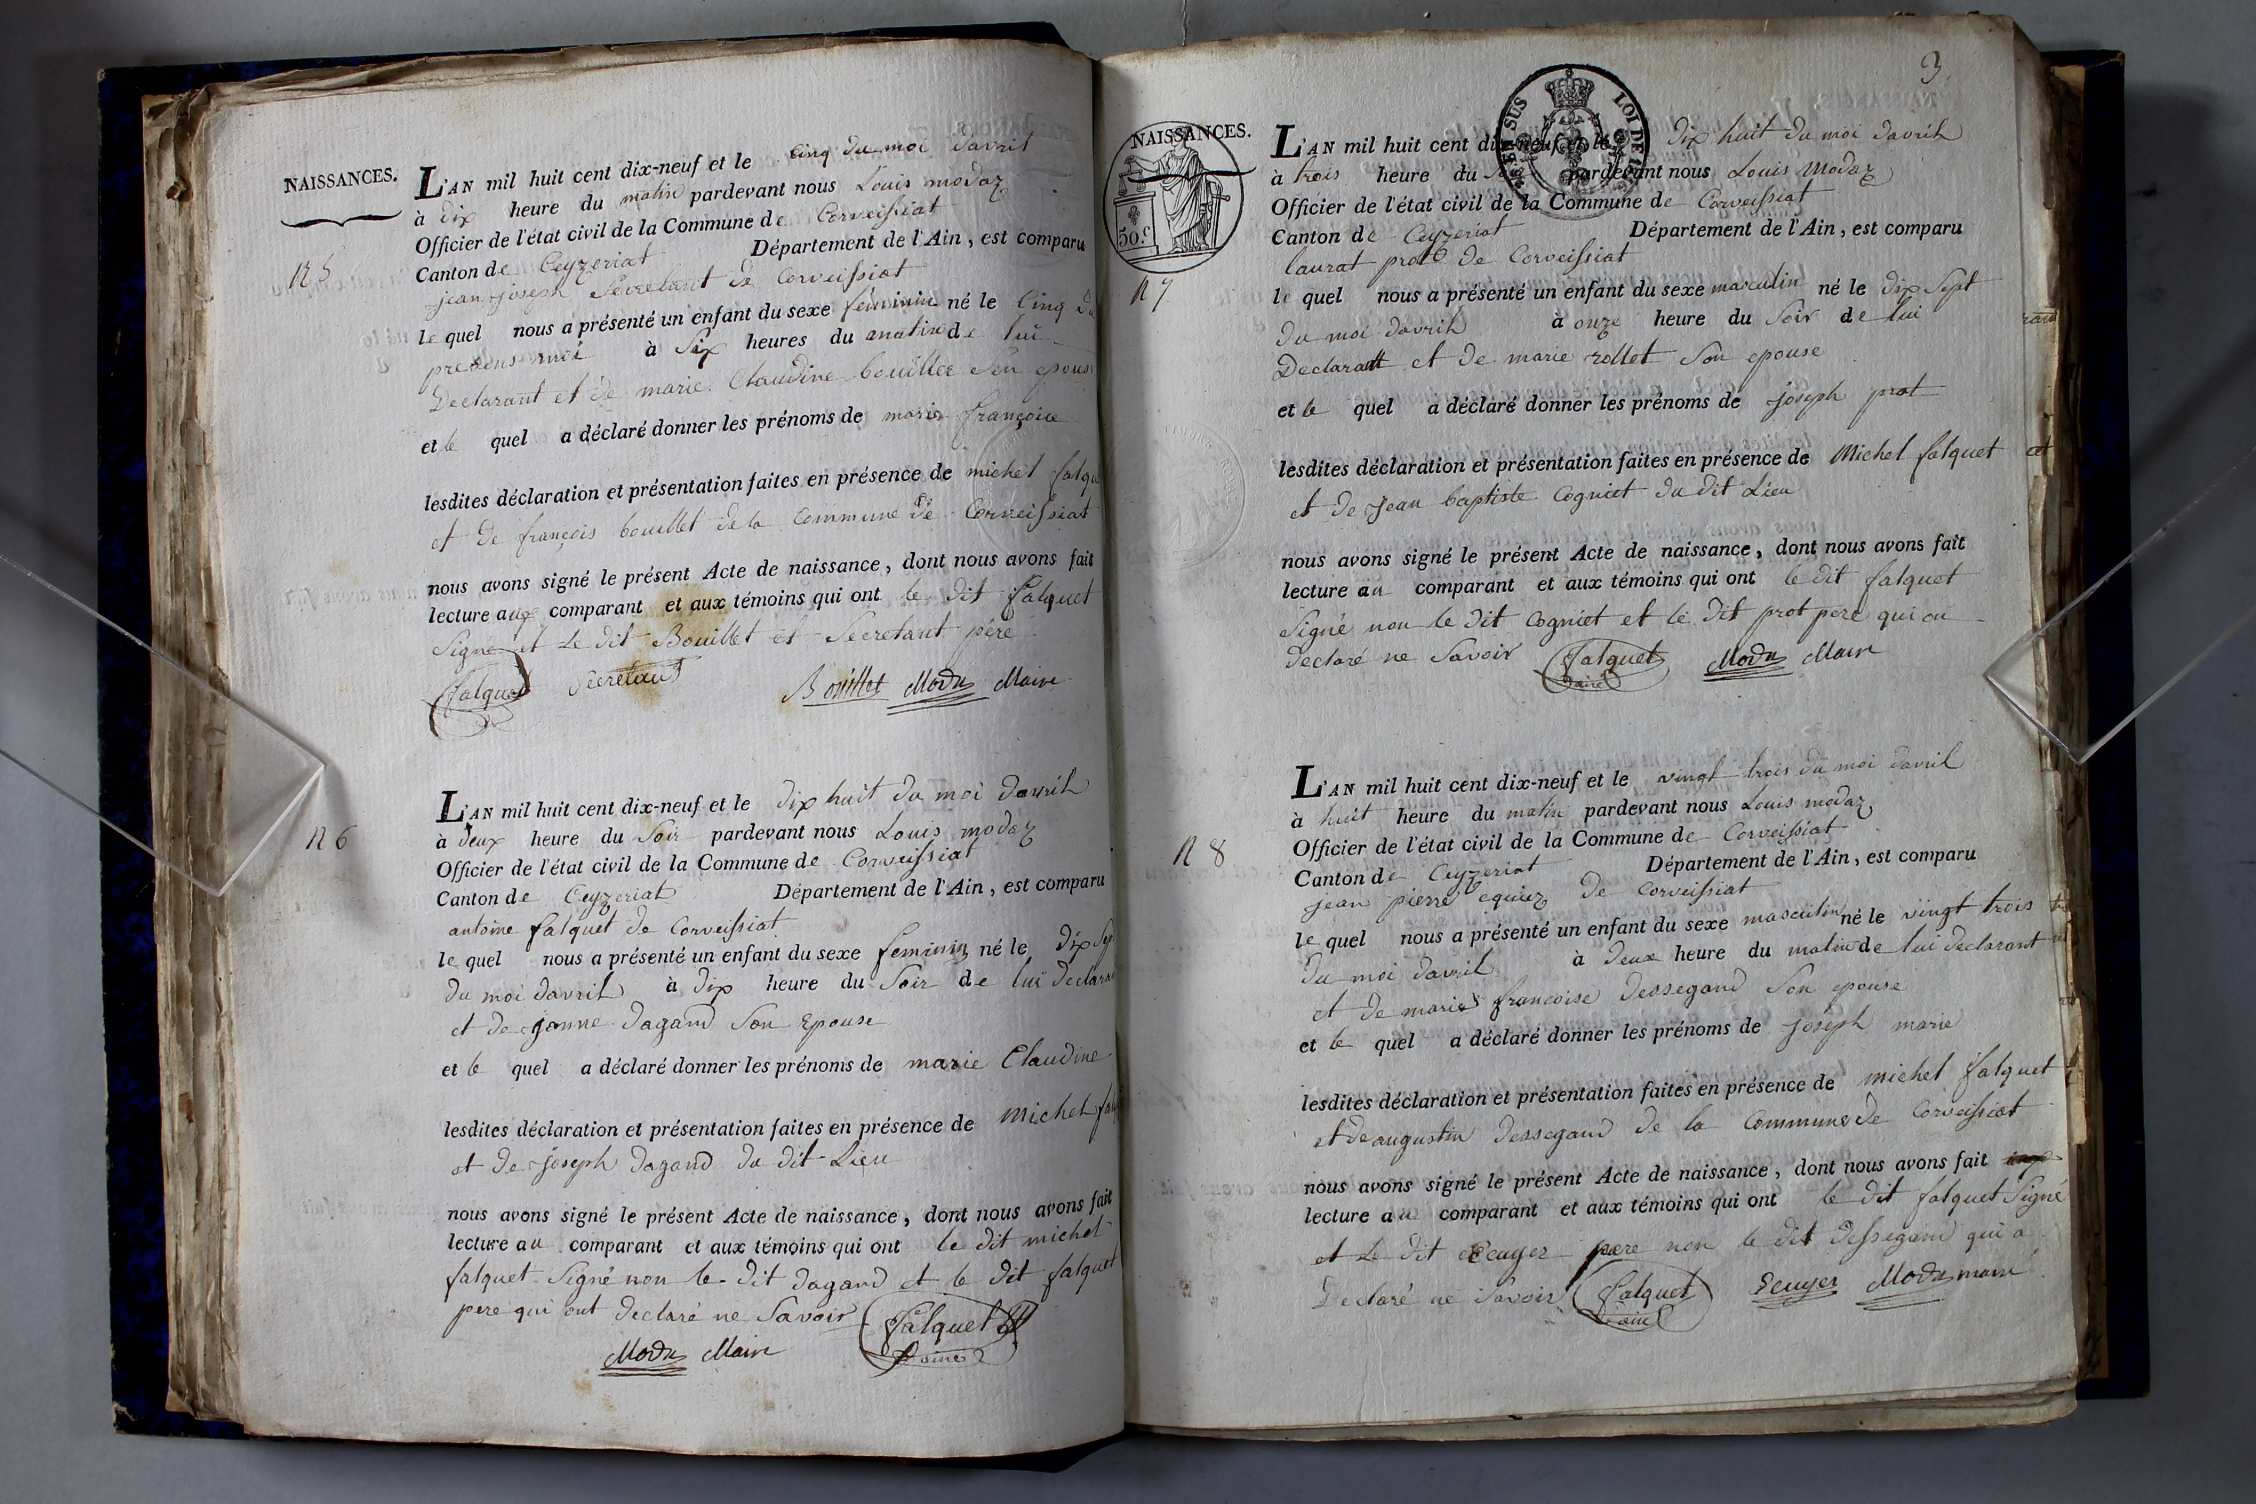 NAISSANCES.
L'AN mil huit cent dix-neuf et le cinq du moi davril
à dix heure du matin pardevant nous Louis modaz
Officier de l'état civil de la Commune de Corveissiat
Canton de Ceyzeriat Département de l'Ain, est comparu
N 5
jean joseph Secretant de Corveissiat
le quel nous a présenté un enfant du sexe feminin né le Cinq du
presens moi à Six heures du matin de lui
Declarant et de marie Claudine bouillee Son epouse
et le quel a déclaré donner les prénoms de marie françoise
lesdites déclaration et présentation faites en présence de michel falquet
et de françois bouillet de la Commune de Corveissiat
nous avons signé le présent Acte de naissance, dont nous avons fait
lecture aux comparant et aux témoins qui ont le dit falquet
Signé et le dit Bouillet et Secretant père
falquet Secretant Bouillet Modas Maire
L'AN mil huit cent dix-neuf et le dix huit du moi davril
N 6
à deux heure du Soir pardevant nous Louis modaz
Officier de l'état civil de la Commune de Corveissiat
Canton de Ceyzeriat Département de l'Ain, est comparu
antoine falquet de Corveissiat
le quel nous a présenté un enfant du sexe feminin né le dix Sep
du moi davril à dix heure du Soir de lui declarant
et de janne dagand Son Epouse
et le quel a déclaré donner les prénoms de marie Claudine
lesdites déclaration et présentation faites en présence de michel fal
et de joseph dagand du dit Lieu
nous avons signé le présent Acte de naissance, dont nous avons fait
lecture au comparant et aux témoins qui ont le dit michel
falquet Signé non le dit dagand et le dit falquet
pere qui ont declaré ne Savoir falquet
Modas Maire
3
NAISSANCES.
50.c
EN SUS
LOI DE
L'AN mil huit cent dix-neuf et le dix huit du moi davril
à trois heure du pardevant nous Louis Modaz
Officier de l'état civil de la Commune de Corveissiat
Canton de Ceyzeriat Département de l'Ain, est comparu
N 7
laurat prot de Corveissiat
le quel nous a présenté un enfant du sexe masculin né le dix Sept
du moi davril à onze heure du Soir de lui
Declarant et de marie rollet Son epouse
et le quel a déclaré donner les prénoms de joseph prot
lesdites déclaration et présentation faites en présence de Michel falquet
et de jean baptiste Cogniet du dit Lieu
nous avons signé le présent Acte de naissance, dont nous avons fait
lecture au comparant et aux témoins qui ont le dit falquet
Signé non le dit Cogniet et le dit prot pere qui on
declaré ne Savoir falquet Modas Maire
L'AN mil huit cent dix-neuf et le vingt trois du moi davril
à huit heure du matin pardevant nous Louis modaz
N 8
Officier de l'état civil de la Commune de Corveissiat
Canton de Ceyzeriat Département de l'Ain, est comparu
jean pierre equiez de Corveissiat
le quel nous a présenté un enfant du sexe masculin né le vingt trois
du moi davril à deux heure du matin de lui declarant
et de marie francoise dessegand Son epouse
et le quel a déclaré donner les prénoms de joseph marie
lesdites déclaration et présentation faites en présence de michel falquet
et de augustin dessegand de la Commune de Corveissiat
nous avons signé le présent Acte de naissance, dont nous avons fait
lecture au comparant et aux témoins qui ont le dit falquet Signé
et le dit Ecuyer pere non le dit dessegand qui a
Declaré ne Savoir falquet Ecuyer Modas maire